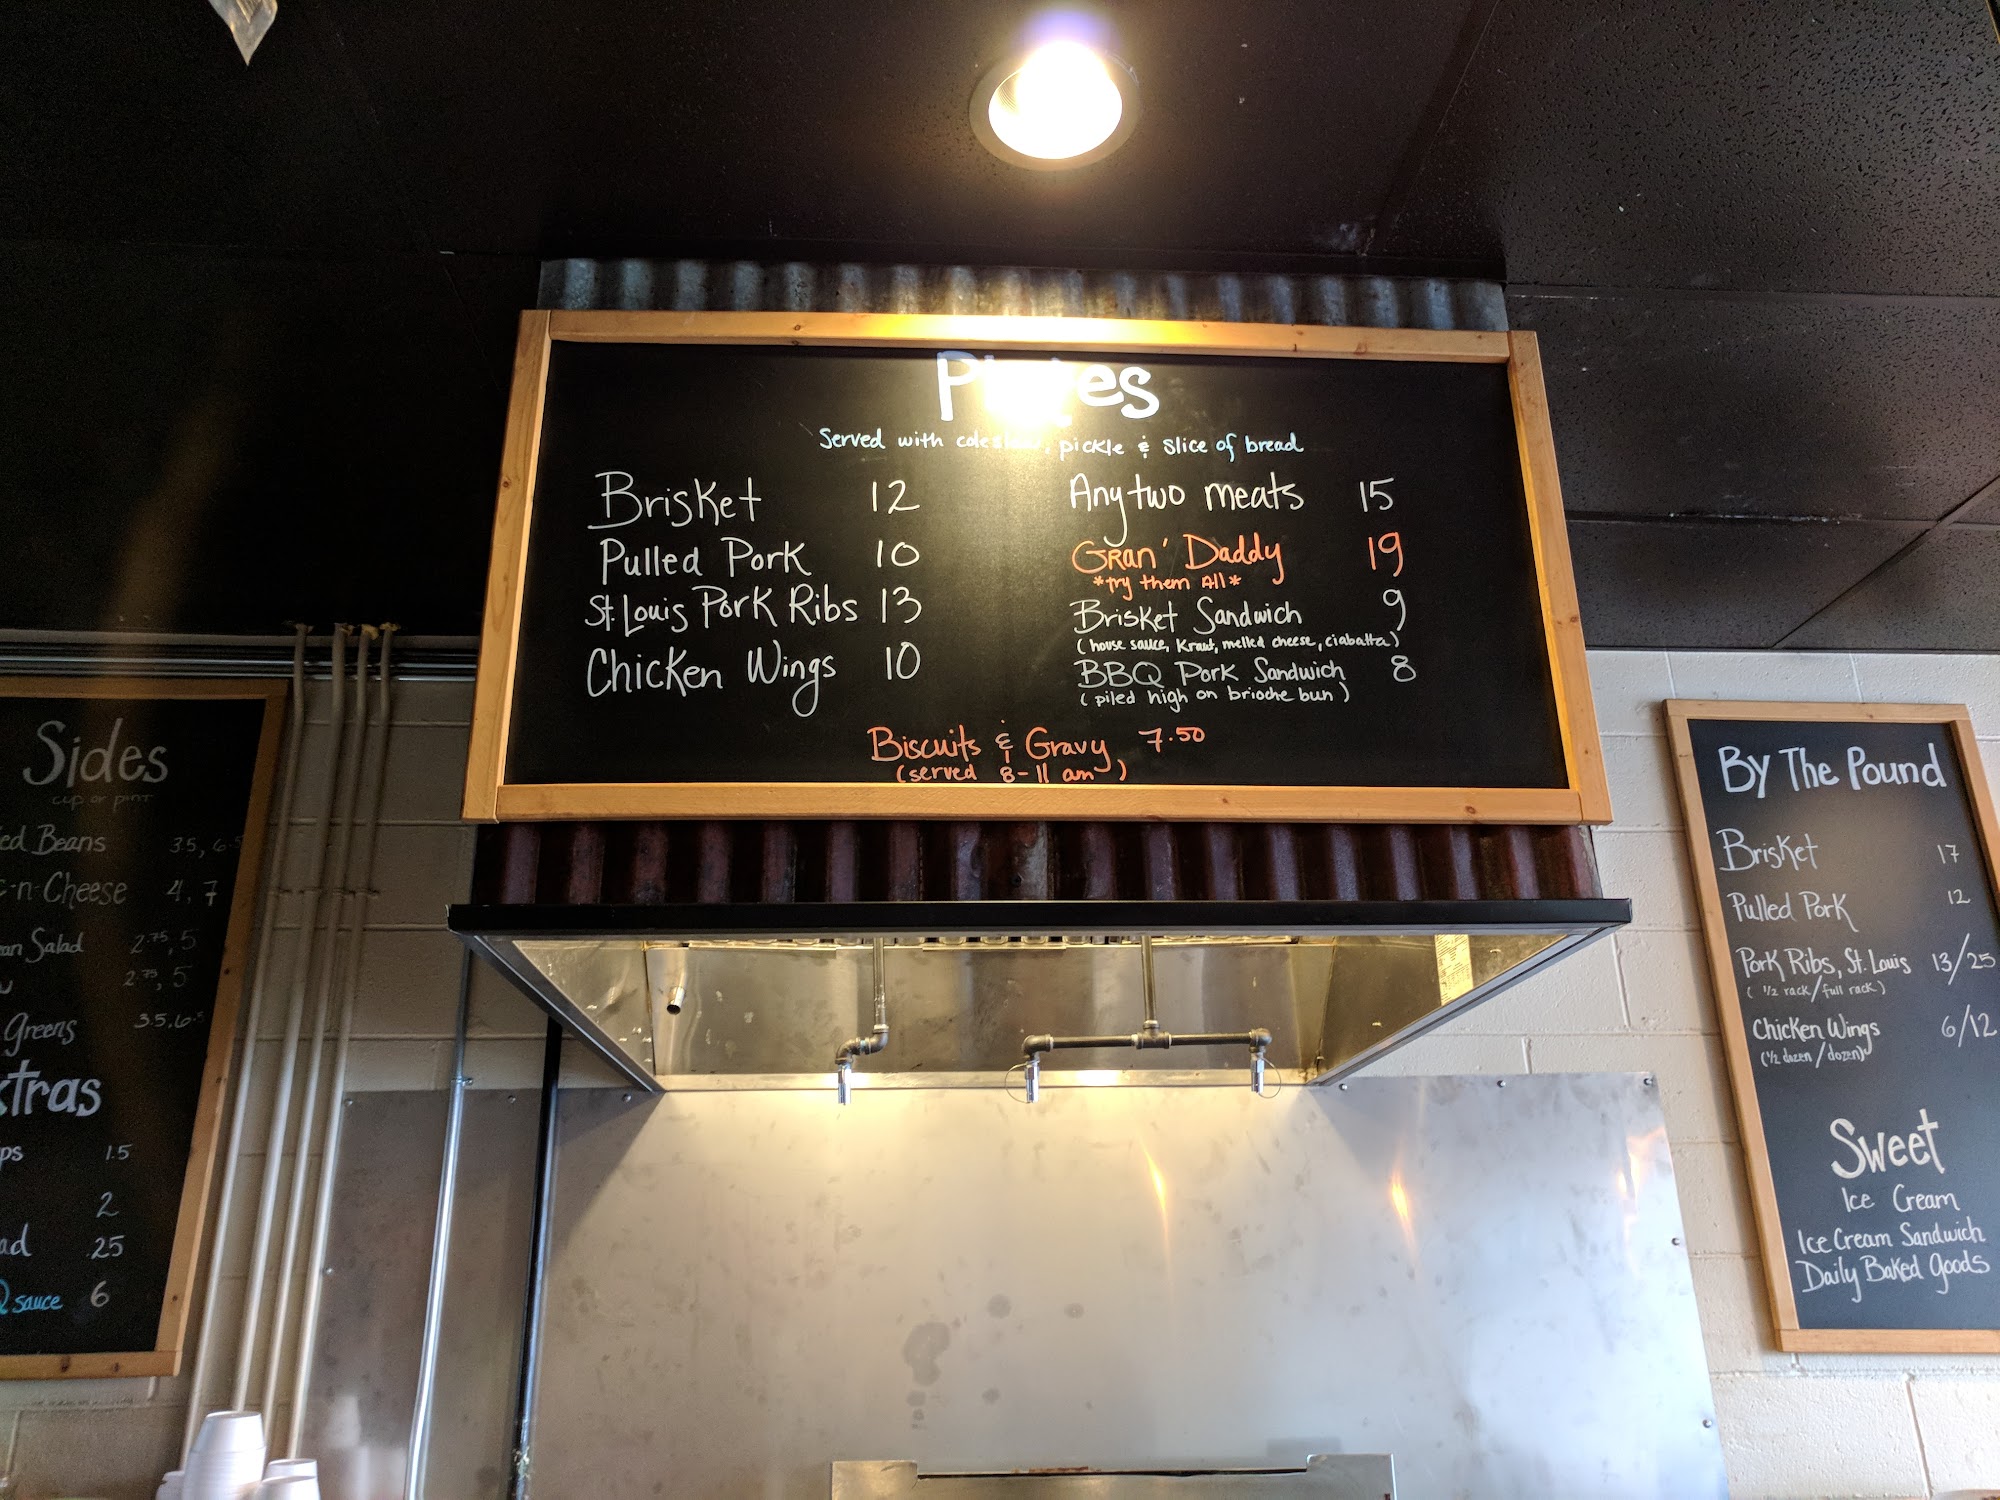 Plates
Served with coleslaw, pickle & slice of bread
Brisket 12
Pulled Pork 10
St. Louis Pork Ribs 13
Chicken Wings 10
Any two meats 15
Gran' Daddy 19
*try them All*
Brisket Sandwich 9
(house sauce, Kraut, melted cheese, ciabatta)
BBQ Pork Sandwich 8
(piled high on brioche bun)
Biscuits & Gravy 7.50
(served 8-11 am)
Sides
cup or pint
Beans 3.5, 6.5
-n-Cheese 4, 7
Salad 2.75, 5
2.75, 5
Greens 3.5, 6.5
tras
ps 1.5
2
ad .25
sauce 6
By The Pound
Brisket 17
Pulled Pork 12
Pork Ribs, St. Louis 13/25
(1/2 rack/full rack)
Chicken Wings 6/12
(1/2 dozen/dozen)
Sweet
Ice Cream
Ice Cream Sandwich
Daily Baked Goods